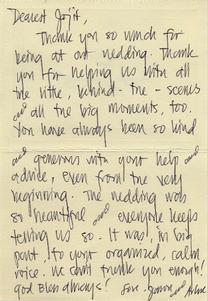 Dearest Jojit,
Thank you so much for
being at our wedding. Thank
you for helping us with all
the little, behind-the-scenes
and all the big moments, too.
You have always been so kind
and generous with your help and
advice, even from the very
beginning. The wedding was
so beautiful and everyone keeps
telling us so. It was, in big
part, to your organized, calm
voice. We can't thank you enough!
God Bless always! Love,